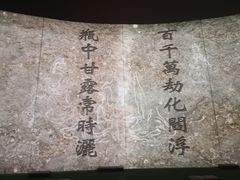 百千萬劫化閻浮
瓶中甘露常時灑